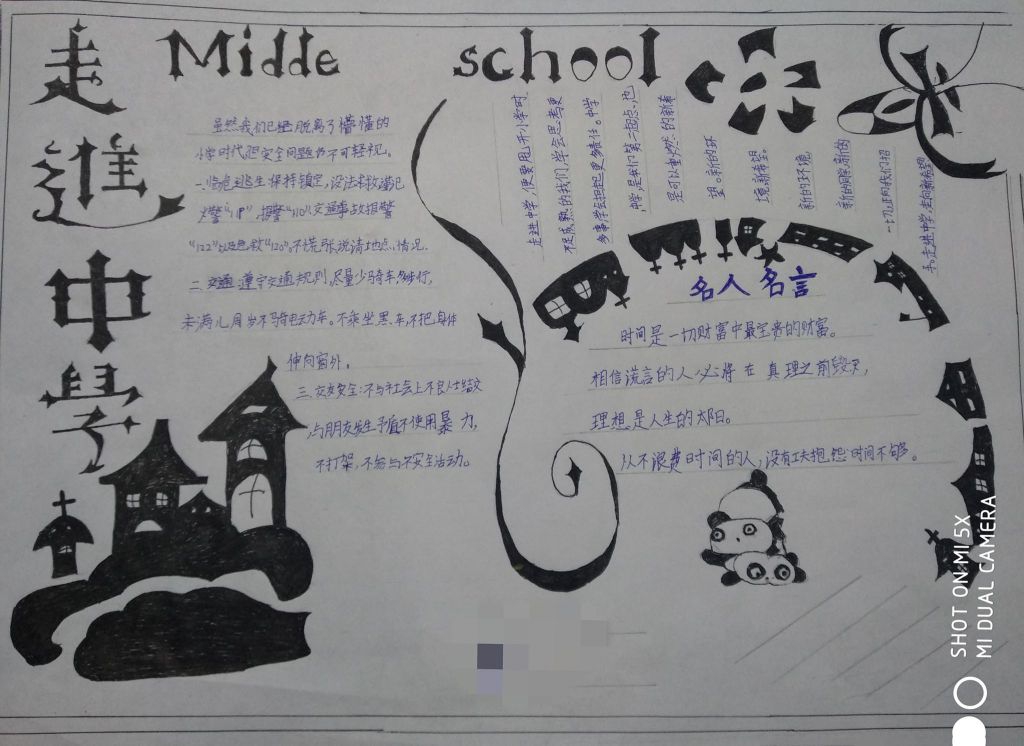 走進中學
Midde school
虽然我们已经脱离了懵懂的
小学时代但安全问题仍不可轻视。
一.临危逃生:保持镇定,设法求救满已
火警"119",报警"110"交通事故报警
"122"以及急救"120".不慌张说清地点、情况.
二.交通:遵守交通规则,尽量少骑车,多步行,
未满儿周岁不骑电动车。不乘坐黑车,不把身体
伸向窗外。
三.交友安全:不与社会上不良人士结交
,与朋友发生矛盾不使用暴力,
不打架,不参与不安全活动。
走进中学,便要甩开小学时
不足成熟的我们,学会思考更
多事,学会担起更多责任。中学
中学,是我们第二起点,也
是可以重燃的新希
望。新的环
境,新希望。
新的环境,
新的同学,新的
一切,正向我们招
手。走进中学,走向新希望
名人名言
时间是一切财富中最宝贵的财富。
相信谎言的人必将在真理之前毁灭,
理想是人生的太阳。
从不浪费时间的人,没有工夫抱怨时间不够。
SHOT ON MI 5X
MI DUAL CAMERA